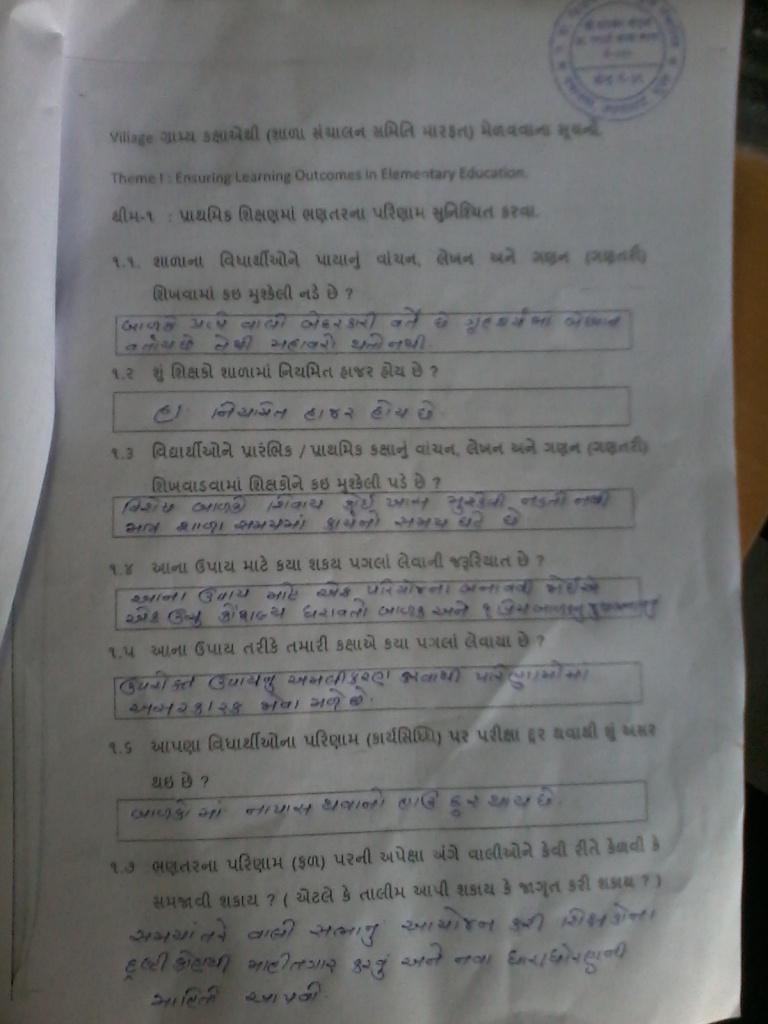 Village ગ્રામ્ય કક્ષાએથી (શાળા સંચાલન સમિતિ મારફત) મેળવવાના સૂચનો.
Theme I : Ensuring Learning Outcomes in Elementary Education.
થીમ-૧ : પ્રાથમિક શિક્ષણમાં ભણતરના પરિણામ સુનિશ્ચિત કરવા.
૧.૧. શાળાના વિધાર્થીઓને પાયાનું વાંચન, લેખન અને ગણન (ગણતરી)
શિખવામાં કઇ મુશ્કેલી નડે છે ?
બાળકો પ્રત્યે વાલી બેદરકારી વર્તે છે ગૃહકાર્યમાં
મહાવરો થતો નથી.
૧.૨ શું શિક્ષકો શાળામાં નિયમિત હાજર હોય છે ?
હા નિયમિત હાજર હોય છે.
૧.૩ વિદ્યાર્થીઓને પ્રારંભિક / પ્રાથમિક કક્ષાનું વાંચન, લેખન અને ગણન (ગણતરી)
શિખવાડવામાં શિક્ષકોને કઇ મુશ્કેલી પડે છે ?
વિશેષ બાળકો સિવાય કોઈ ખાસ મુશ્કેલી નડતી નથી
માત્ર શાળા સમયમાં કાર્યનો સમય ઘટે છે
૧.૪ આના ઉપાય માટે કયા શકય પગલાં લેવાની જરૂરિયાત છે ?
આના ઉપાય માટે એક પરિયોજના બનાવવી જોઈએ
એક ઉચ્ચ કૌશલ્ય ધરાવતો બાળક અને
૧.૫ આના ઉપાય તરીકે તમારી કક્ષાએ કયા પગલાં લેવાયા છે ?
ઉપરોક્ત ઉપાયનું અમલીકરણ થવાથી પરિણામોમાં
અસરકારક જોવા મળે છે.
૧.૬ આપણા વિધાર્થીઓના પરિણામ (કાર્યસિધ્ધિ) પર પરીક્ષા દૂર થવાથી શું અસર
થઇ છે ?
બાળકોમાં નાપાસ થવાનો હાઉ દૂર થાય છે.
૧.૭ ભણતરના પરિણામ (ફળ) પરની અપેક્ષા અંગે વાલીઓને કેવી રીતે કેળવી કે
સમજાવી શકાય ? ( એટલે કે તાલીમ આપી શકાય કે જાગૃત કરી શકાય ? )
સમયાંતરે વાલી સભાનું આયોજન કરી શિક્ષકોના
દ્રષ્ટીકોણથી માહીતગાર કરવું અને નવા ધારાધોરણની
માહિતી આપવી.